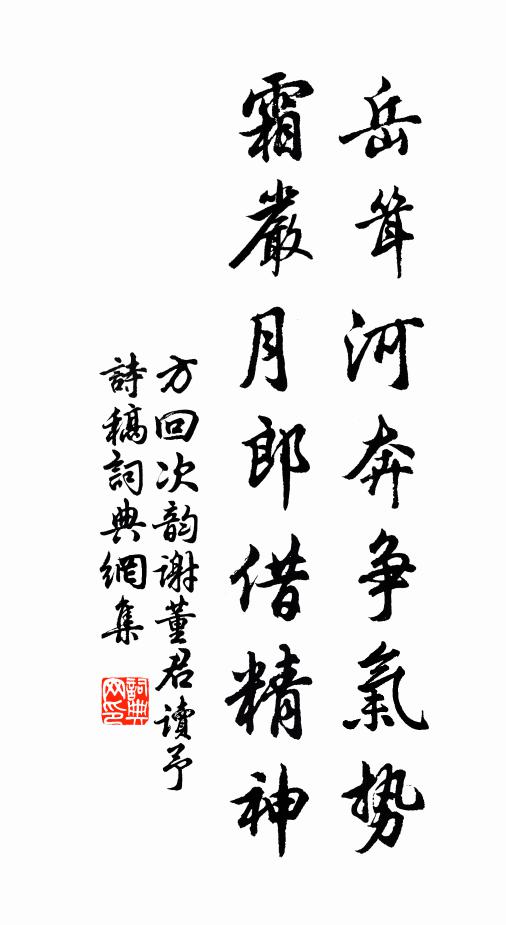 岳耸河奔争氣勢
霜嚴月郎借精神
方回次韵謝董君讀予
詩稿詞典網集
詞典网印